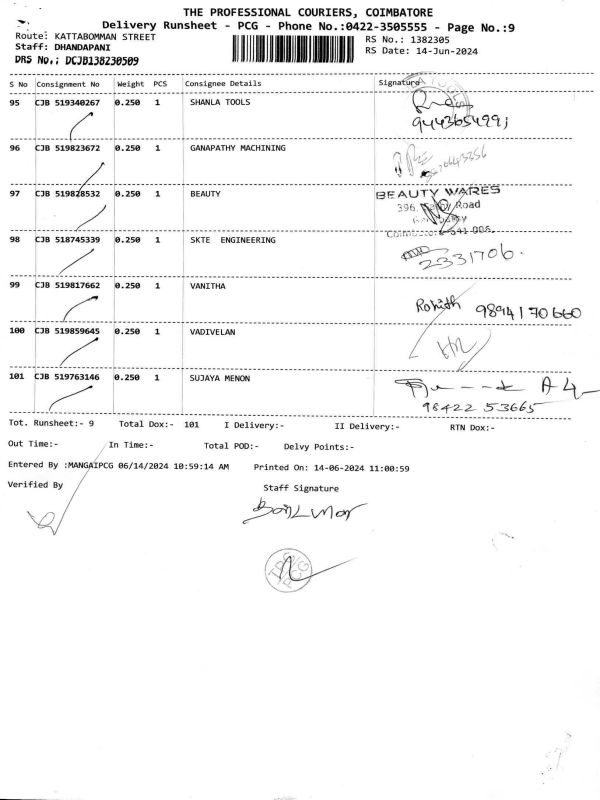 THE PROFESSIONAL COURIERS, COIMBATORE
Delivery Runsheet - PCG - Phone No.:0422-3505555 - Page No.:9
Route: KATTABOMMAN STREET
RS No.: 1382305
Staff: DHANDAPANI
RS Date: 14-Jun-2024
DRS No.; DCJB138230509
S No Consignment No Weight PCS Consignee Details Signature
95 CJB 519340267 0.250 1 SHANLA TOOLS
96 CJB 519823672 0.250 1 GANAPATHY MACHINING
97 CJB 519828532 0.250 1 BEAUTY BEAUTY WARES
396, Road
98 CJB 518745339 0.250 1 SKTE ENGINEERING
2331706.
99 CJB 519817662 0.250 1 VANITHA
Rohith 9894170660
100 CJB 519859645 0.250 1 VADIVELAN
101 CJB 519763146 0.250 1 SUJAYA MENON
98422 53665
Tot. Runsheet:- 9 Total Dox:- 101 I Delivery:- II Delivery:- RTN Dox:-
Out Time:- In Time:- Total POD:- Delvy Points:-
Entered By :MANGAIPCG 06/14/2024 10:59:14 AM Printed On: 14-06-2024 11:00:59
Verified By Staff Signature